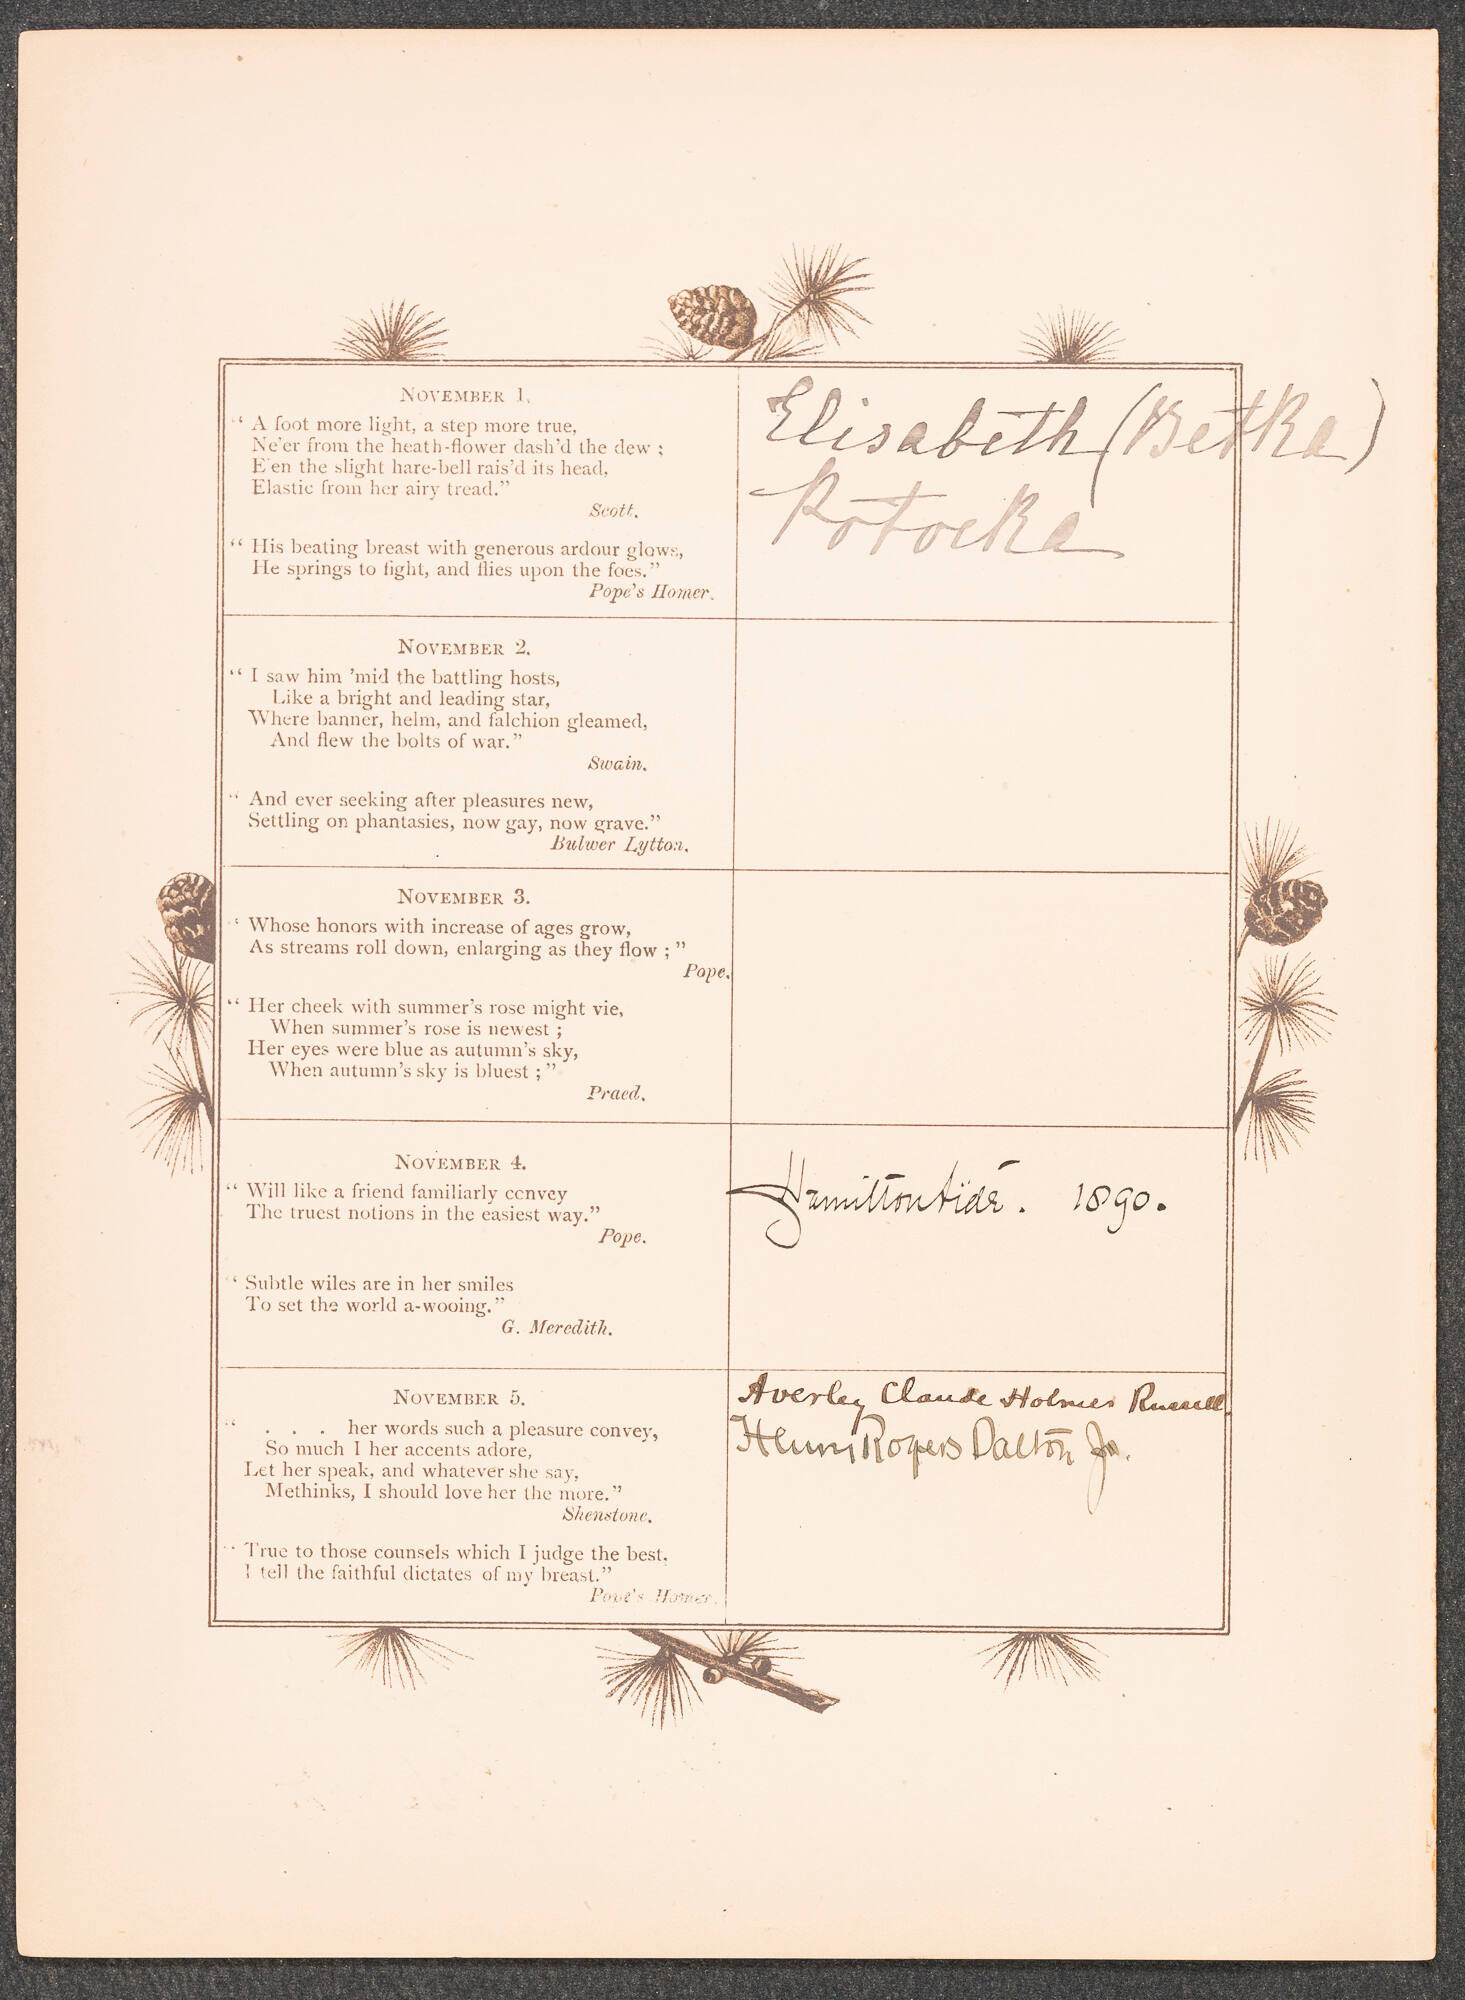 NOVEMBER 1.
“ A foot more light, a step more true,
Ne'er from the heath-flower dash'd the dew ;
E'en the slight hare-bell rais'd its head,
Elastic from her airy tread.”
Scott.
“ His beating breast with generous ardour glows,
He springs to fight, and flies upon the foes.”
Pope's Homer.
Elisabeth (Betka)
Potocka
NOVEMBER 2.
“ I saw him 'mid the battling hosts,
Like a bright and leading star,
Where banner, helm, and falchion gleamed,
And flew the bolts of war.”
Swain.
“ And ever seeking after pleasures new,
Settling on phantasies, now gay, now grave.”
Bulwer Lytton.
NOVEMBER 3.
“ Whose honors with increase of ages grow,
As streams roll down, enlarging as they flow ; ”
Pope.
“ Her cheek with summer's rose might vie,
When summer's rose is newest ;
Her eyes were blue as autumn's sky,
When autumn's sky is bluest ; ”
Praed.
NOVEMBER 4.
“ Will like a friend familiarly convey
The truest notions in the easiest way.”
Pope.
“ Subtle wiles are in her smiles
To set the world a-wooing.”
G. Meredith.
Hamilton Aïdé. 1890.
NOVEMBER 5.
“ . . . her words such a pleasure convey,
So much I her accents adore,
Let her speak, and whatever she say,
Methinks, I should love her the more.”
Shenstone.
“ True to those counsels which I judge the best,
I tell the faithful dictates of my breast.”
Pope's Homer.
Averley Claude Holmes Russell
Henry Rogers Dalton Jr.